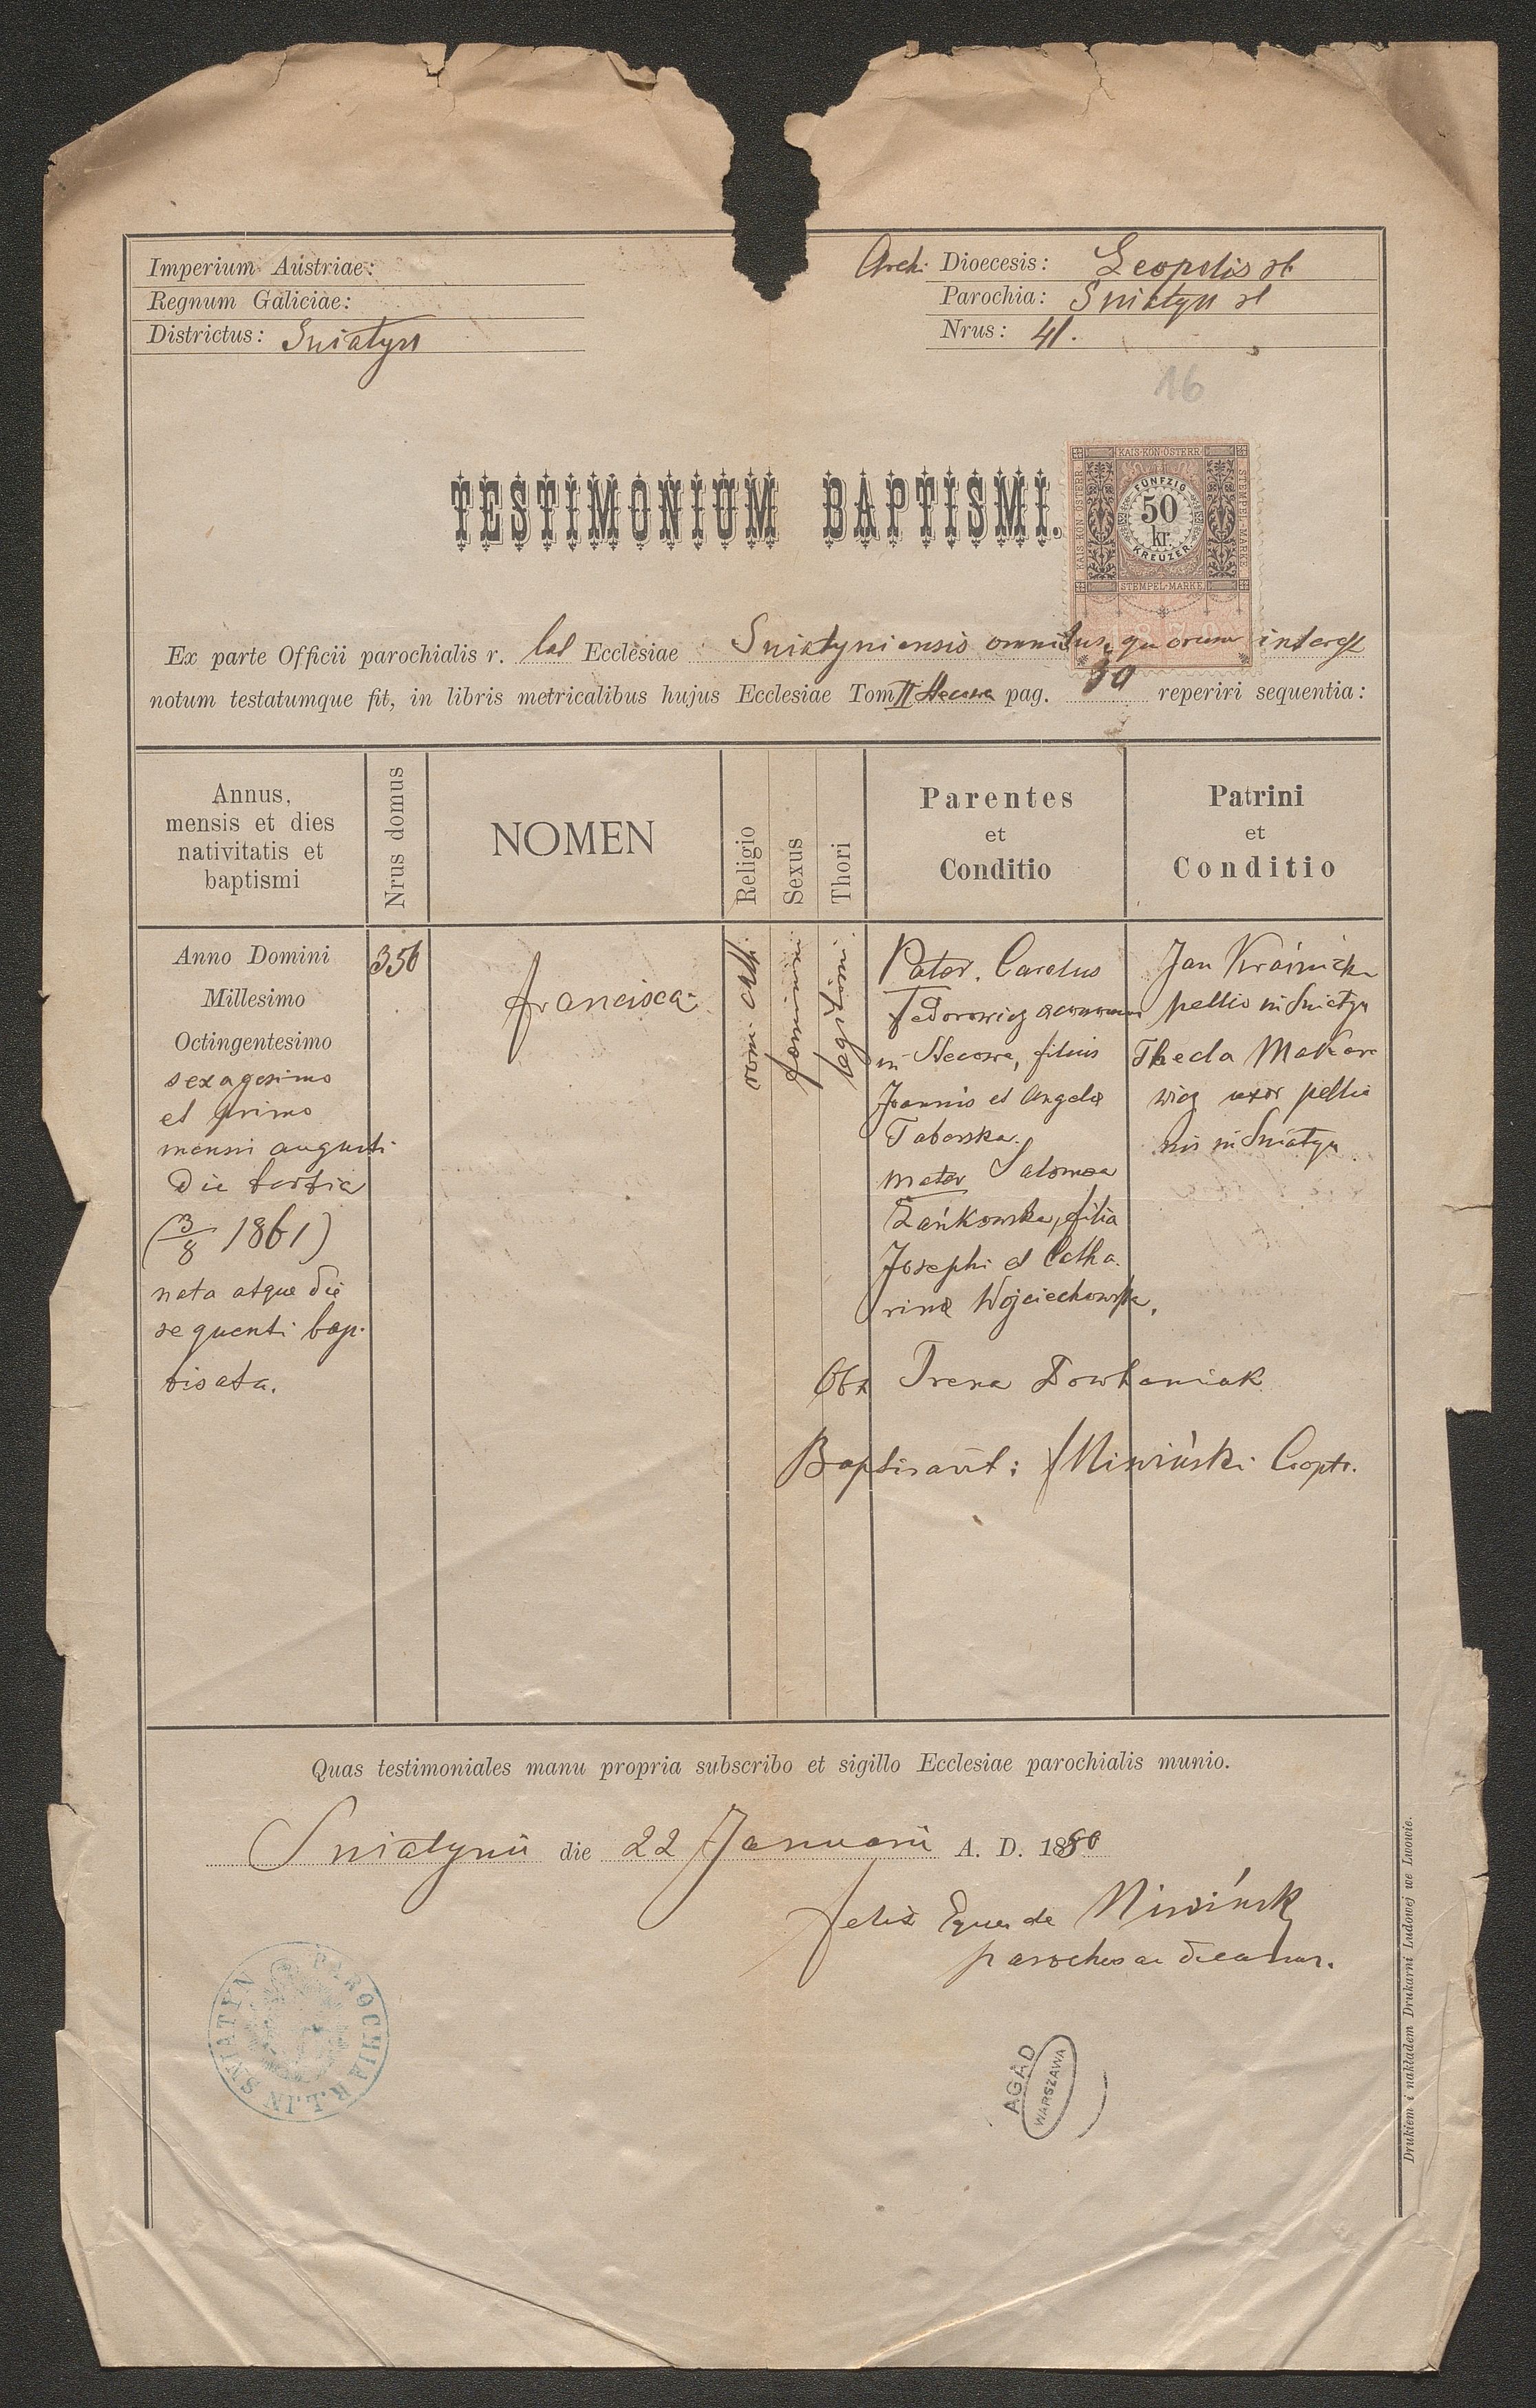 Imperium Austriae:
Regnum Galiciae:
Districtus: Sniatyn
Archi Dioecesis: Leopolis rl
Parochia: Sniatyn rl
Nrus: 41.
16
KAIS·KÖN·ÖSTERR
KAIS·KÖN·ÖSTERR
STEMPEL-MARKE
FÜNFZIG
50
kr.
KREUZER
STEMPEL-MARKE
TESTIMONIUM BAPTISMI.
Ex parte Officii parochialis r. lat Ecclesiae Sniatyniensis omnibus, quorum interest
notum testatumque fit, in libris metricalibus hujus Ecclesiae Tom II Stecowa pag. 30 reperiri sequentia:
Annus,
mensis et dies
nativitatis et
baptismi
Nrus domus
NOMEN
Religio
Sexus
Thori
Parentes
et
Conditio
Patrini
et
Conditio
Anno Domini
Millesimo
Octingentesimo
sexagesimo
et primo
mensi augusti
die tertia
(3/8 1861)
nata atque die
sequenti bap-
tisata.
356
Francisca
rom. cath.
feminini
legitimi
Pater. Carolus
Fedorowicz oeconomus
in Stecowa, filius
Joannis et Angela
Taborska.
Mater Salomea
Żańkowska, filia
Josephi et Catha-
rina Wojciechowska.
Jan Kraśnicki
pellio in Sniatyn
Thecla Makare
wicz uxor pellio
nis in Sniatyn
Obs Irena Dowhaniak
Baptisavit: F Niwiński Coptr.
Quas testimoniales manu propria subscribo et sigillo Ecclesiae parochialis munio.
Sniatynii die 22 Januarii A. D. 1880
Felix Eques de Niwiński
parochus ac decanus.
PAROCHIA R.L. IN SNIATYN
AGAD
WARSZAWA
Drukiem i nakładem Drukarni Ludowej we Lwowie.